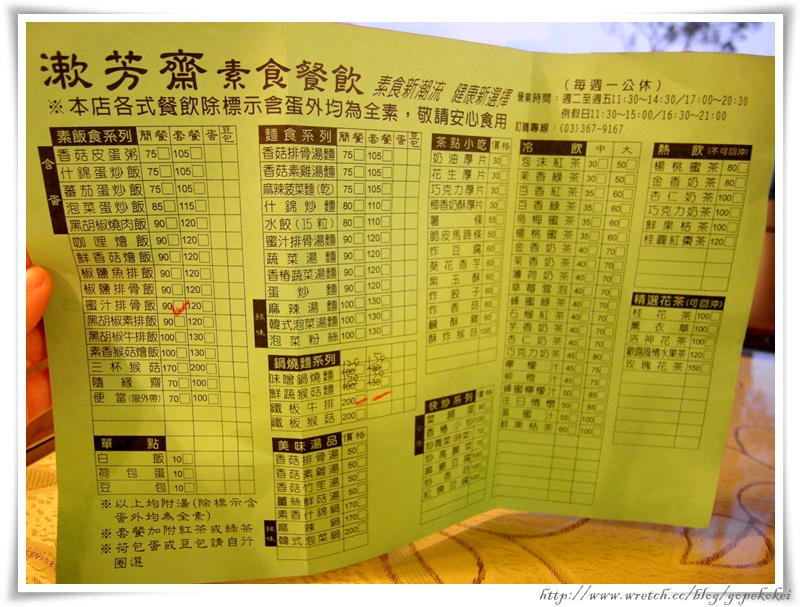 漱芳齋 素食餐飲 素食新潮流 健康新選擇
※本店各式餐飲除標示含蛋外均為全素，敬請安心食用
(每週一公休)
營業時間：週二至週五11:30~14:30/17:00~20:30
例假日11:30~15:00/16:30~21:00
訂購專線：(03)367-9167
素飯食系列 簡餐 套餐 蛋 豆包
含蛋
香菇皮蛋粥 75 105
什錦蛋炒飯 75 105
蕃茄蛋炒飯 75 105
泡菜蛋炒飯 85 115
黑胡椒燒肉飯 90 120
咖哩燴飯 90 120
鮮香菇燴飯 90 120
椒鹽魚排飯 90 120
椒鹽排骨飯 90 120
蜜汁排骨飯 90 120
黑胡椒素排飯 90 120
黑胡椒牛排飯 100 130
素香猴菇燴飯 100 130
三杯猴菇 170 200
隨緣齋 70 100
便當(限外帶) 70 100
單點
白飯 10
荷包蛋 10
豆包 10
※以上均附湯(除標示含
蛋外均為全素)
※套餐加附紅茶或綠茶
※荷包蛋或豆包請自行
圈選
麵食系列 簡餐 套餐 蛋 豆包
香菇排骨湯麵 75 105
香菇素雞湯麵 75 105
麻辣菠菜麵(乾) 75 105
什錦炒麵 80 110
水餃(15粒) 80 110
蜜汁排骨湯麵 90 120
蔬菜湯麵 90 120
香椿蔬菜湯麵 90 120
蛋炒麵 90 120
辣味
麻辣湯麵 100 130
韓式泡菜湯麵 100 130
泡菜粉絲 100 130
鍋燒麵系列
味噌鍋燒麵 100 130
鮮蔬猴菇麵 100 130
鐵板牛排 200
鐵板猴菇 200
美味湯品 價格
香菇排骨湯 50
香菇素雞湯 50
香菇竹笙湯 50
薑絲鮮菇湯 50
素香什錦鍋 170
辣味
麻辣鍋 170
韓式泡菜鍋 200
茶點小吃 價格
奶油厚片 30
花生厚片 30
巧克力厚片 30
椰香奶酥厚片 30
薯條 55
脆皮馬蹄條 50
炸豆腐 60
葵花香芋 60
紫玉酥 60
炸餃子 60
炸香菇 80
鹹酥雞 80
酥炸猴菇 100
快炒系列 價格
冷飲 中 大
泡沫紅茶 30 50
茉香綠茶 30 50
百香紅茶 35 60
百香綠茶 35 60
烏梅蜜茶 35 60
楊桃蜜茶 35 60
金香奶茶 40 70
茉香奶茶 40 70
薄荷奶茶 40 70
草莓雪泡 40 70
蜂蜜綠茶 40 70
石榴紅茶 40 70
芋香奶茶 40 70
杏仁奶茶 45 75
巧克力奶茶 45 75
檸檬汁 45
蜂蜜檸檬汁 50
往日情懷 50
鮮果桔茶 60 100
熱飲(不可回沖)
楊桃蜜茶 80
金香奶茶 80
杏仁奶茶 100
巧克力奶茶 100
鮮果桔茶 100
桂圓紅棗茶 120
精選花茶(可回沖)
桂花茶 100
薰衣草 100
洛神花茶 100
歐風情水果茶 120
玫瑰花茶 150
http://www.wretch.cc/blog/gopekokei